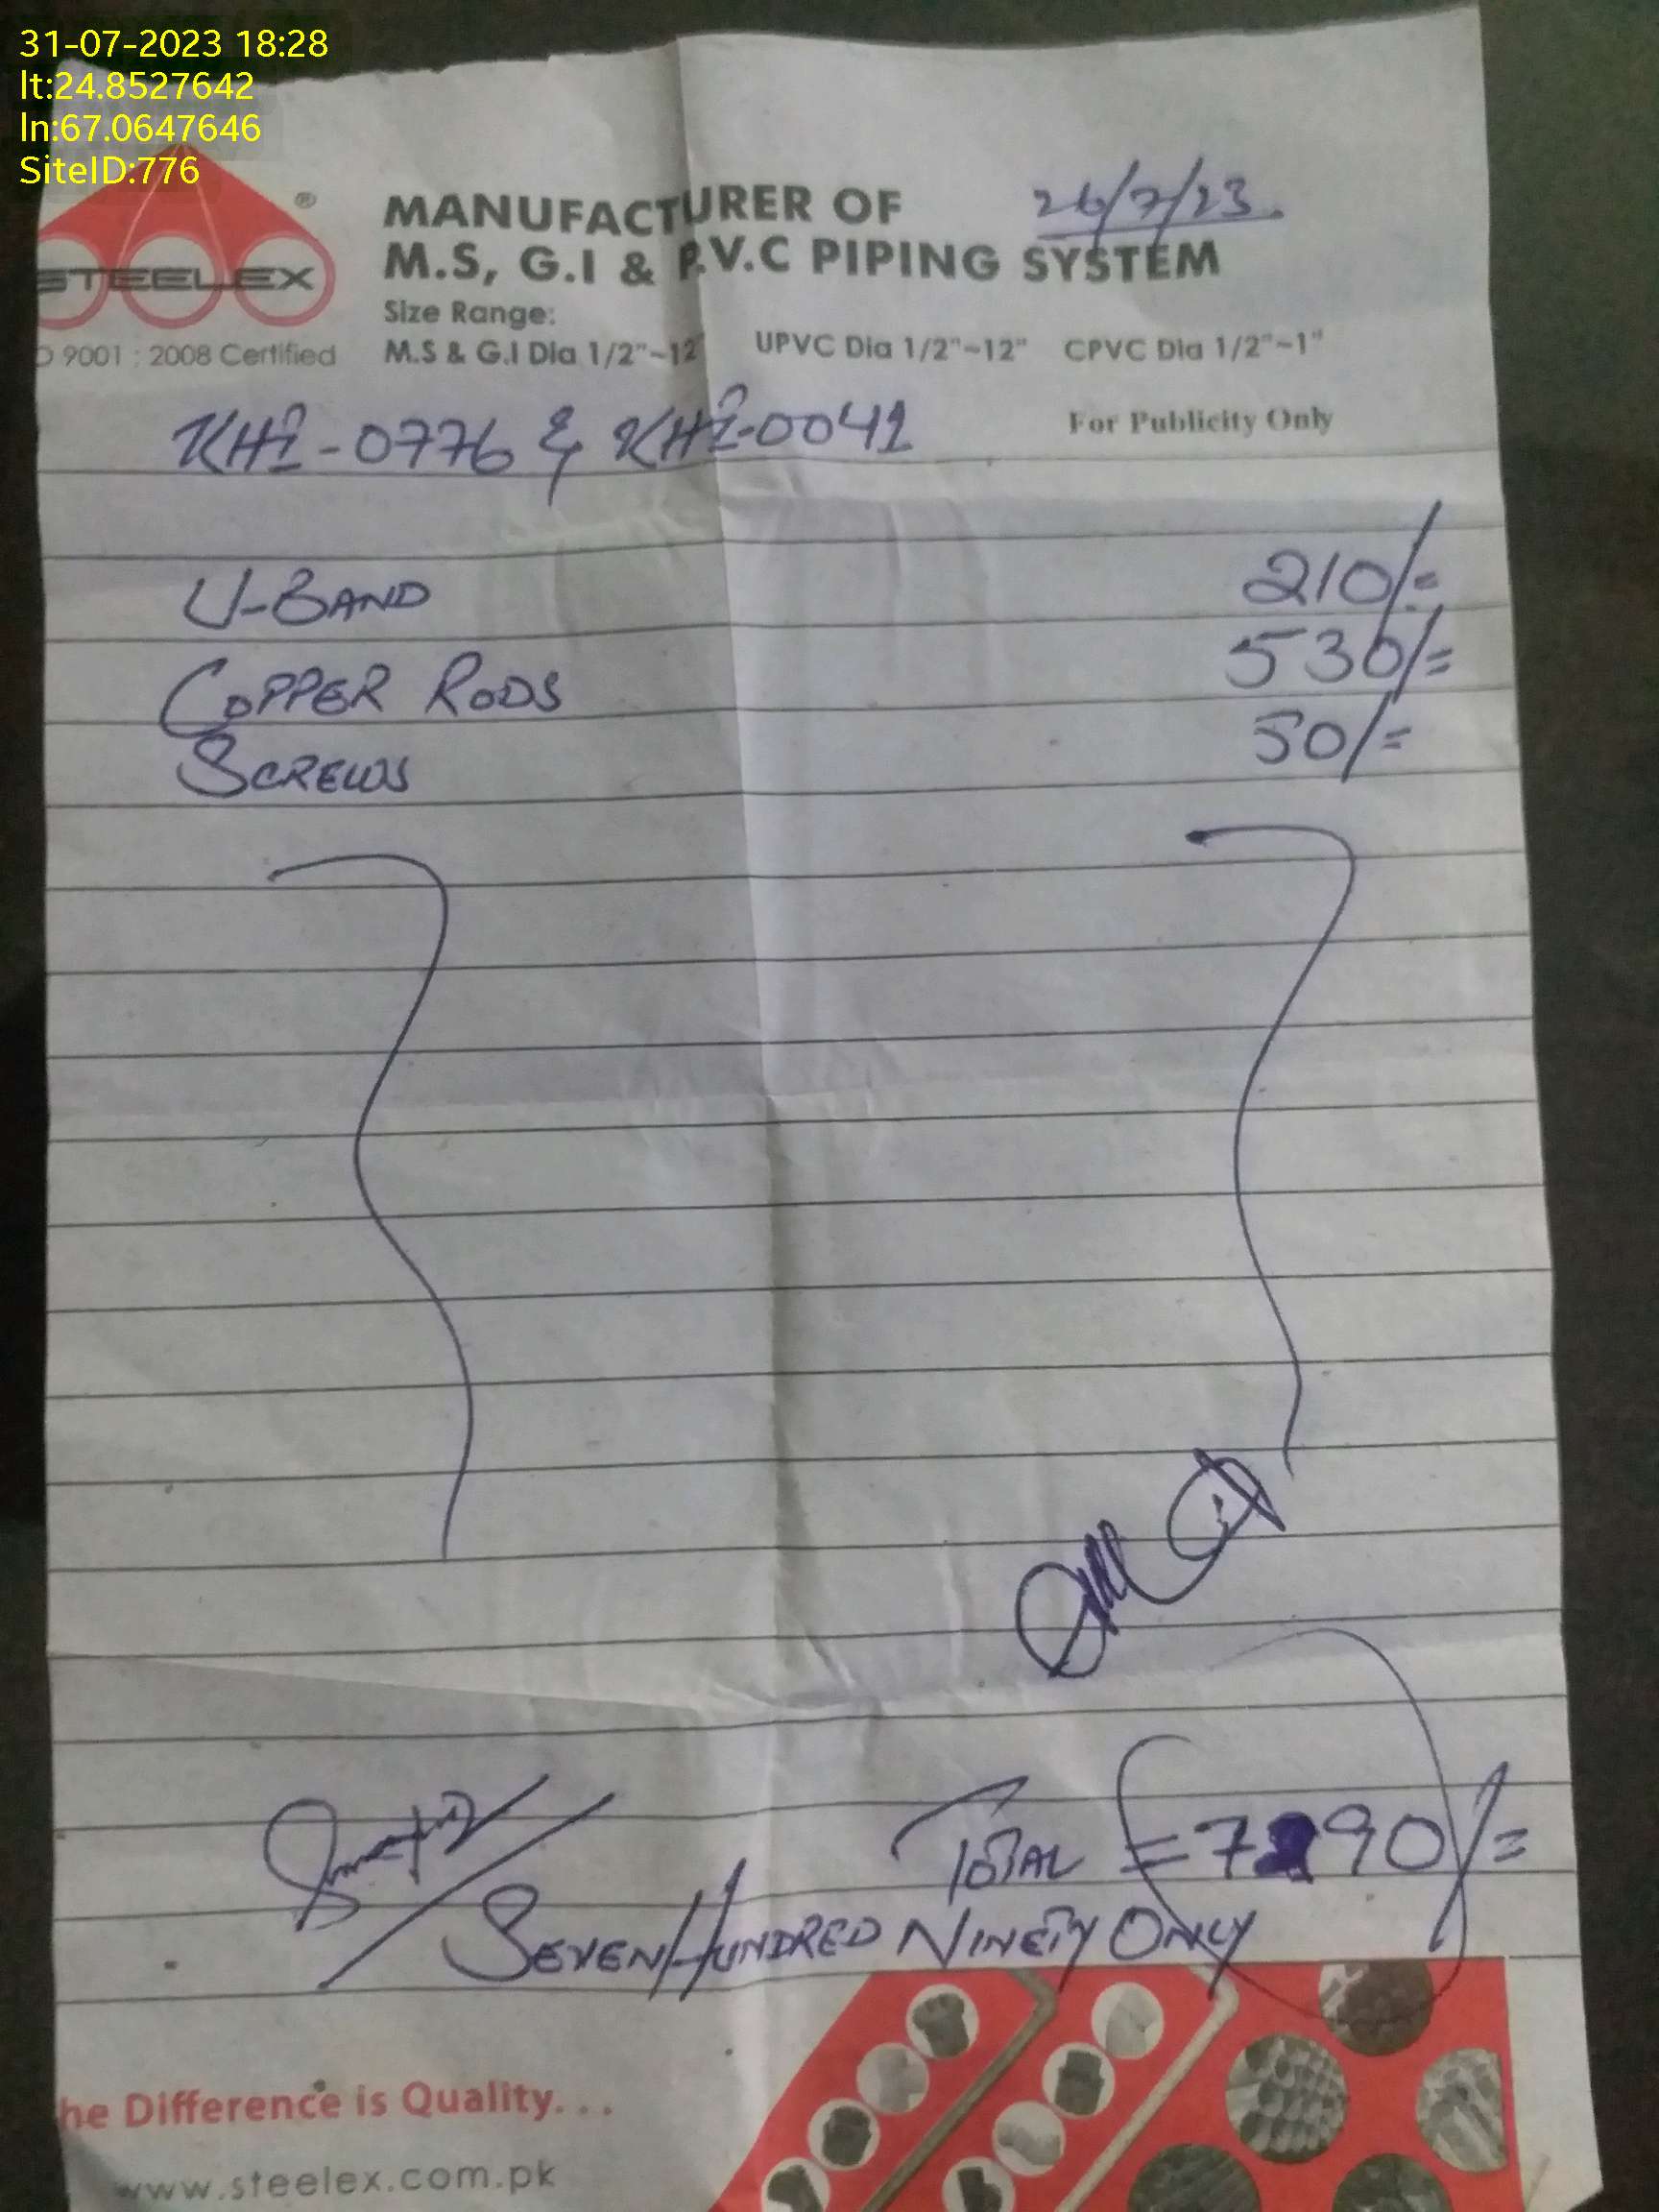 31-07-2023 18:28
lt:24.8527642
ln:67.0647646
SiteID:776
STEELEX ®
9001 : 2008 Certified
MANUFACTURER OF
M.S, G.I & P.V.C PIPING SYSTEM
26/7/23.
Size Range:
M.S & G.I Dia 1/2"~12" UPVC Dia 1/2"~12" CPVC Dia 1/2"~1"
For Publicity Only
KHI-0776 & KHI-0041
U-BAND 210/=
COPPER RODS 530/=
SCREWS 50/=
TOTAL = 790/=
SEVEN HUNDRED NINETY ONLY
he Difference is Quality...
www.steelex.com.pk